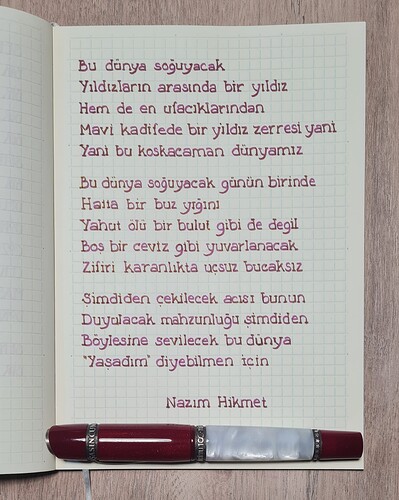 Bu dünya soğuyacak
Yıldızların arasında bir yıldız
Hem de en ufacıklarından
Mavi kadifede bir yıldız zerresi yani
Yani bu koskacaman dünyamız
Bu dünya soğuyacak günün birinde
Hatta bir buz yığını
Yahut ölü bir bulut gibi de değil
Boş bir ceviz gibi yuvarlanacak
Zifiri karanlıkta uçsuz bucaksız
Şimdiden çekilecek acısı bunun
Duyulacak mahzunluğu şimdiden
Böylesine sevilecek bu dünya
"Yaşadım" diyebilmen için
Nazım Hikmet